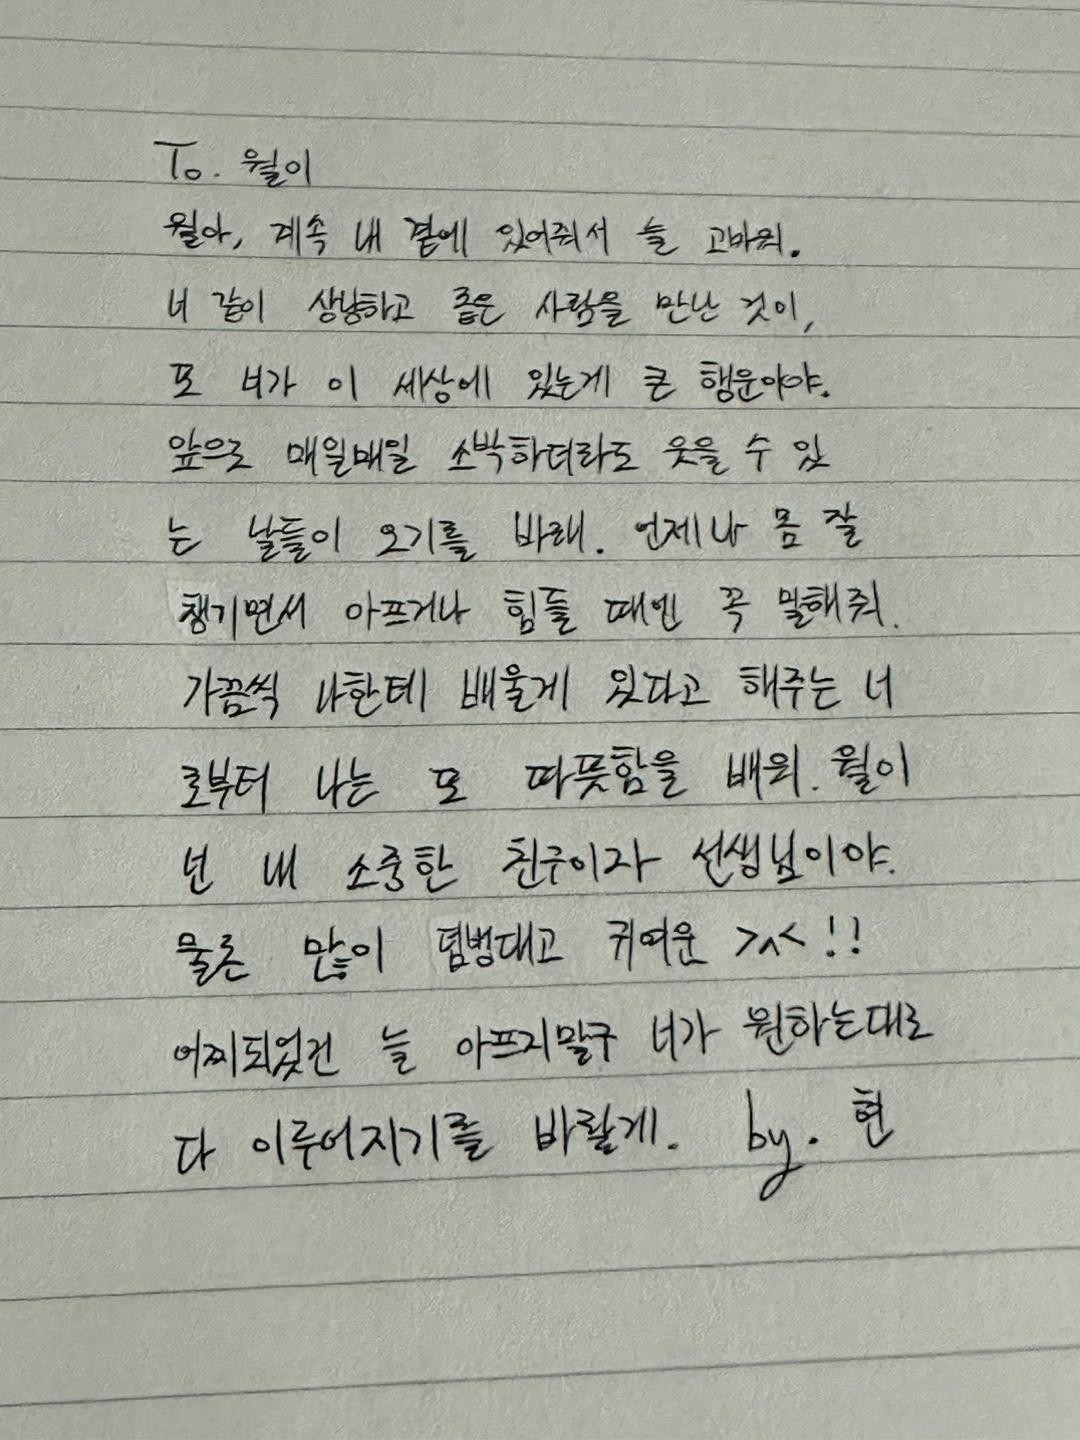 To. 월이
월아, 계속 내 곁에 있어줘서 늘 고마워.
너 같이 상냥하고 좋은 사람을 만난 것이,
또 너가 이 세상에 있는게 큰 행운이야.
앞으로 매일매일 소박하더라도 웃을 수 있
는 날들이 오기를 바래. 언제나 몸 잘
챙기면서 아프거나 힘들 때엔 꼭 말해줘.
가끔씩 나한테 배울게 있다고 해주는 너
로부터 나는 또 따뜻함을 배워. 월이
넌 내 소중한 친구이자 선생님이야.
물론 많이 덤벙대고 귀여운 >^< !!
어찌되었건 늘 아프지말구 너가 원하는대로
다 이루어지기를 바랄게. by. 현